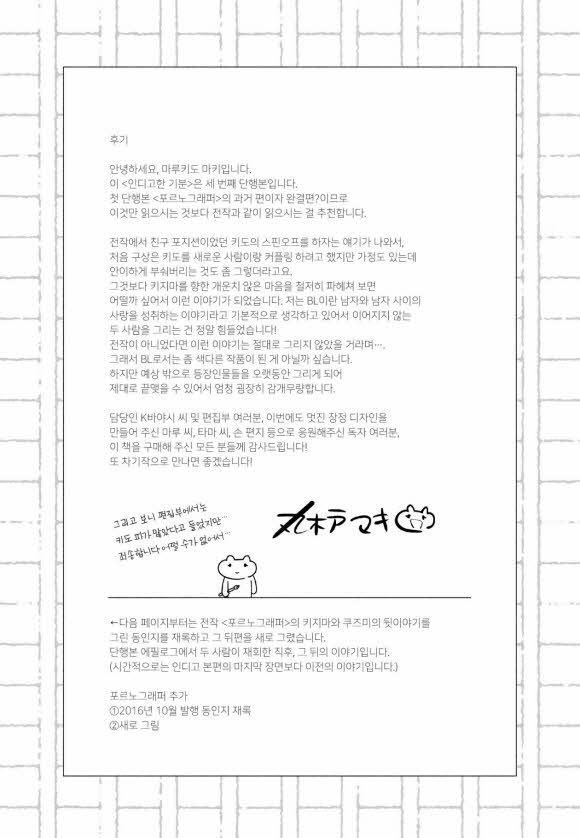 후기
안녕하세요, 마루키도 마키입니다.
이 <인디고한 기분>은 세 번째 단행본입니다.
첫 단행본 <포르노그래퍼>의 과거 편이자 완결편?이므로
이것만 읽으시는 것보다 전작과 같이 읽으시는 걸 추천합니다.
전작에서 친구 포지션이었던 키도의 스핀오프를 하자는 얘기가 나와서,
처음 구상은 키도를 새로운 사람이랑 커플링 하려고 했지만 가정도 있는데
안이하게 부숴버리는 것도 좀 그렇더라고요.
그것보다 키지마를 향한 개운치 않은 마음을 철저히 파헤쳐 보면
어떨까 싶어서 이런 이야기가 되었습니다. 저는 BL이란 남자와 남자 사이의
사랑을 성취하는 이야기라고 기본적으로 생각하고 있어서 이어지지 않는
두 사람을 그리는 건 정말 힘들었습니다!
전작이 아니었다면 이런 이야기는 절대로 그리지 않았을 거라며….
그래서 BL로서는 좀 색다른 작품이 된 게 아닐까 싶습니다.
하지만 예상 밖으로 등장인물들을 오랫동안 그리게 되어
제대로 끝맺을 수 있어서 엄청 굉장히 감개무량합니다.
담당인 K바야시 씨 및 편집부 여러분, 이번에도 멋진 장정 디자인을
만들어 주신 마루 씨, 타마 씨, 손 편지 등으로 응원해주신 독자 여러분,
이 책을 구매해 주신 모든 분들께 감사드립니다!
또 차기작으로 만나면 좋겠습니다!
그리고 보니 편집부에서는
키도 파가 많았다고 들었지만…
죄송합니다 어쩔 수가 없어서…
丸木戸マキ
←다음 페이지부터는 전작 <포르노그래퍼>의 키지마와 쿠즈미의 뒷이야기를
그린 동인지를 재록하고 그 뒤편을 새로 그렸습니다.
단행본 에필로그에서 두 사람이 재회한 직후, 그 뒤의 이야기입니다.
(시간적으로는 인디고 본편의 마지막 장면보다 이전의 이야기입니다.)
포르노그래퍼 추가
①2016년 10월 발행 동인지 재록
②새로 그림